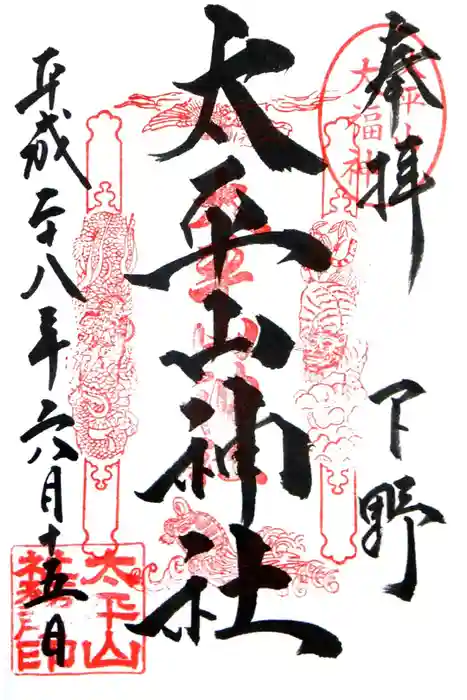 奉拝
下野
太平山神社
平成二十八年六月十五日
太平山
大福神
太平山